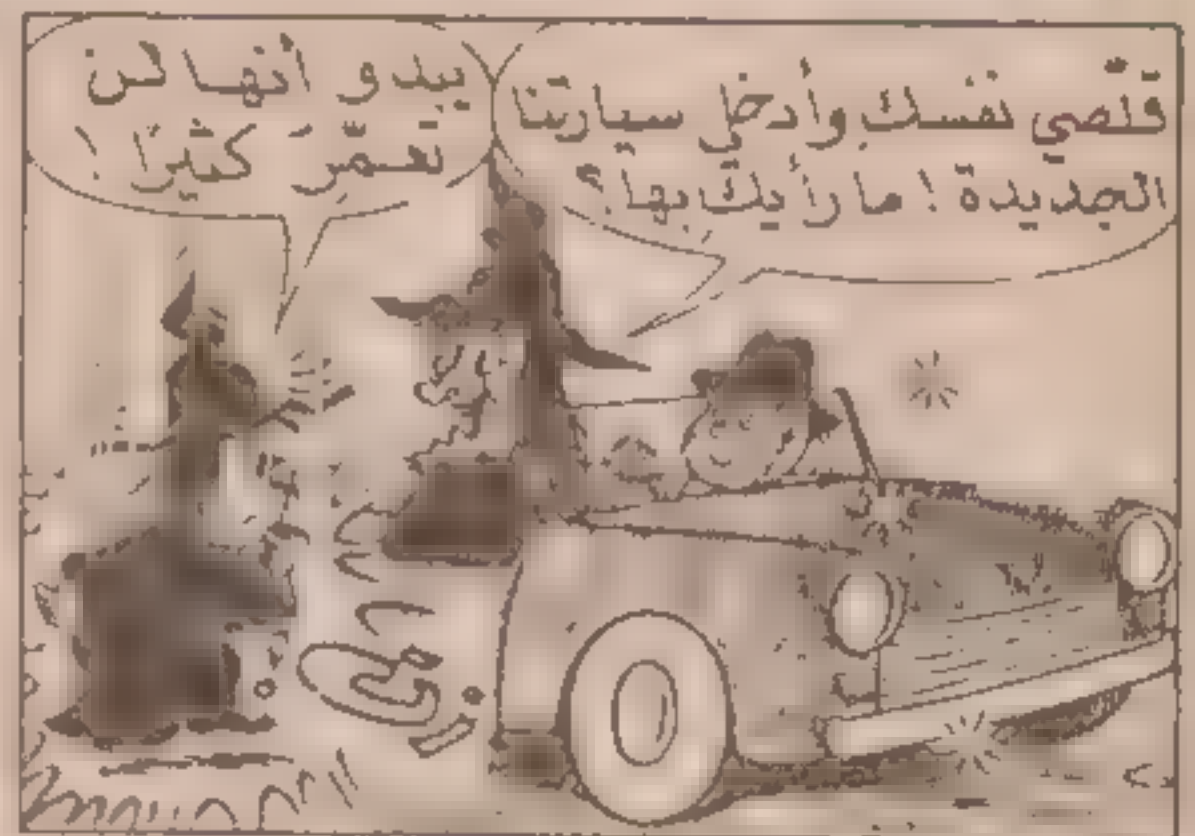 قلّصي نفسك وأدخلي سيارتنا
الجديدة ! ما رأيك بها ؟
يبدو أنها لن
تعمّر كثيرًا !